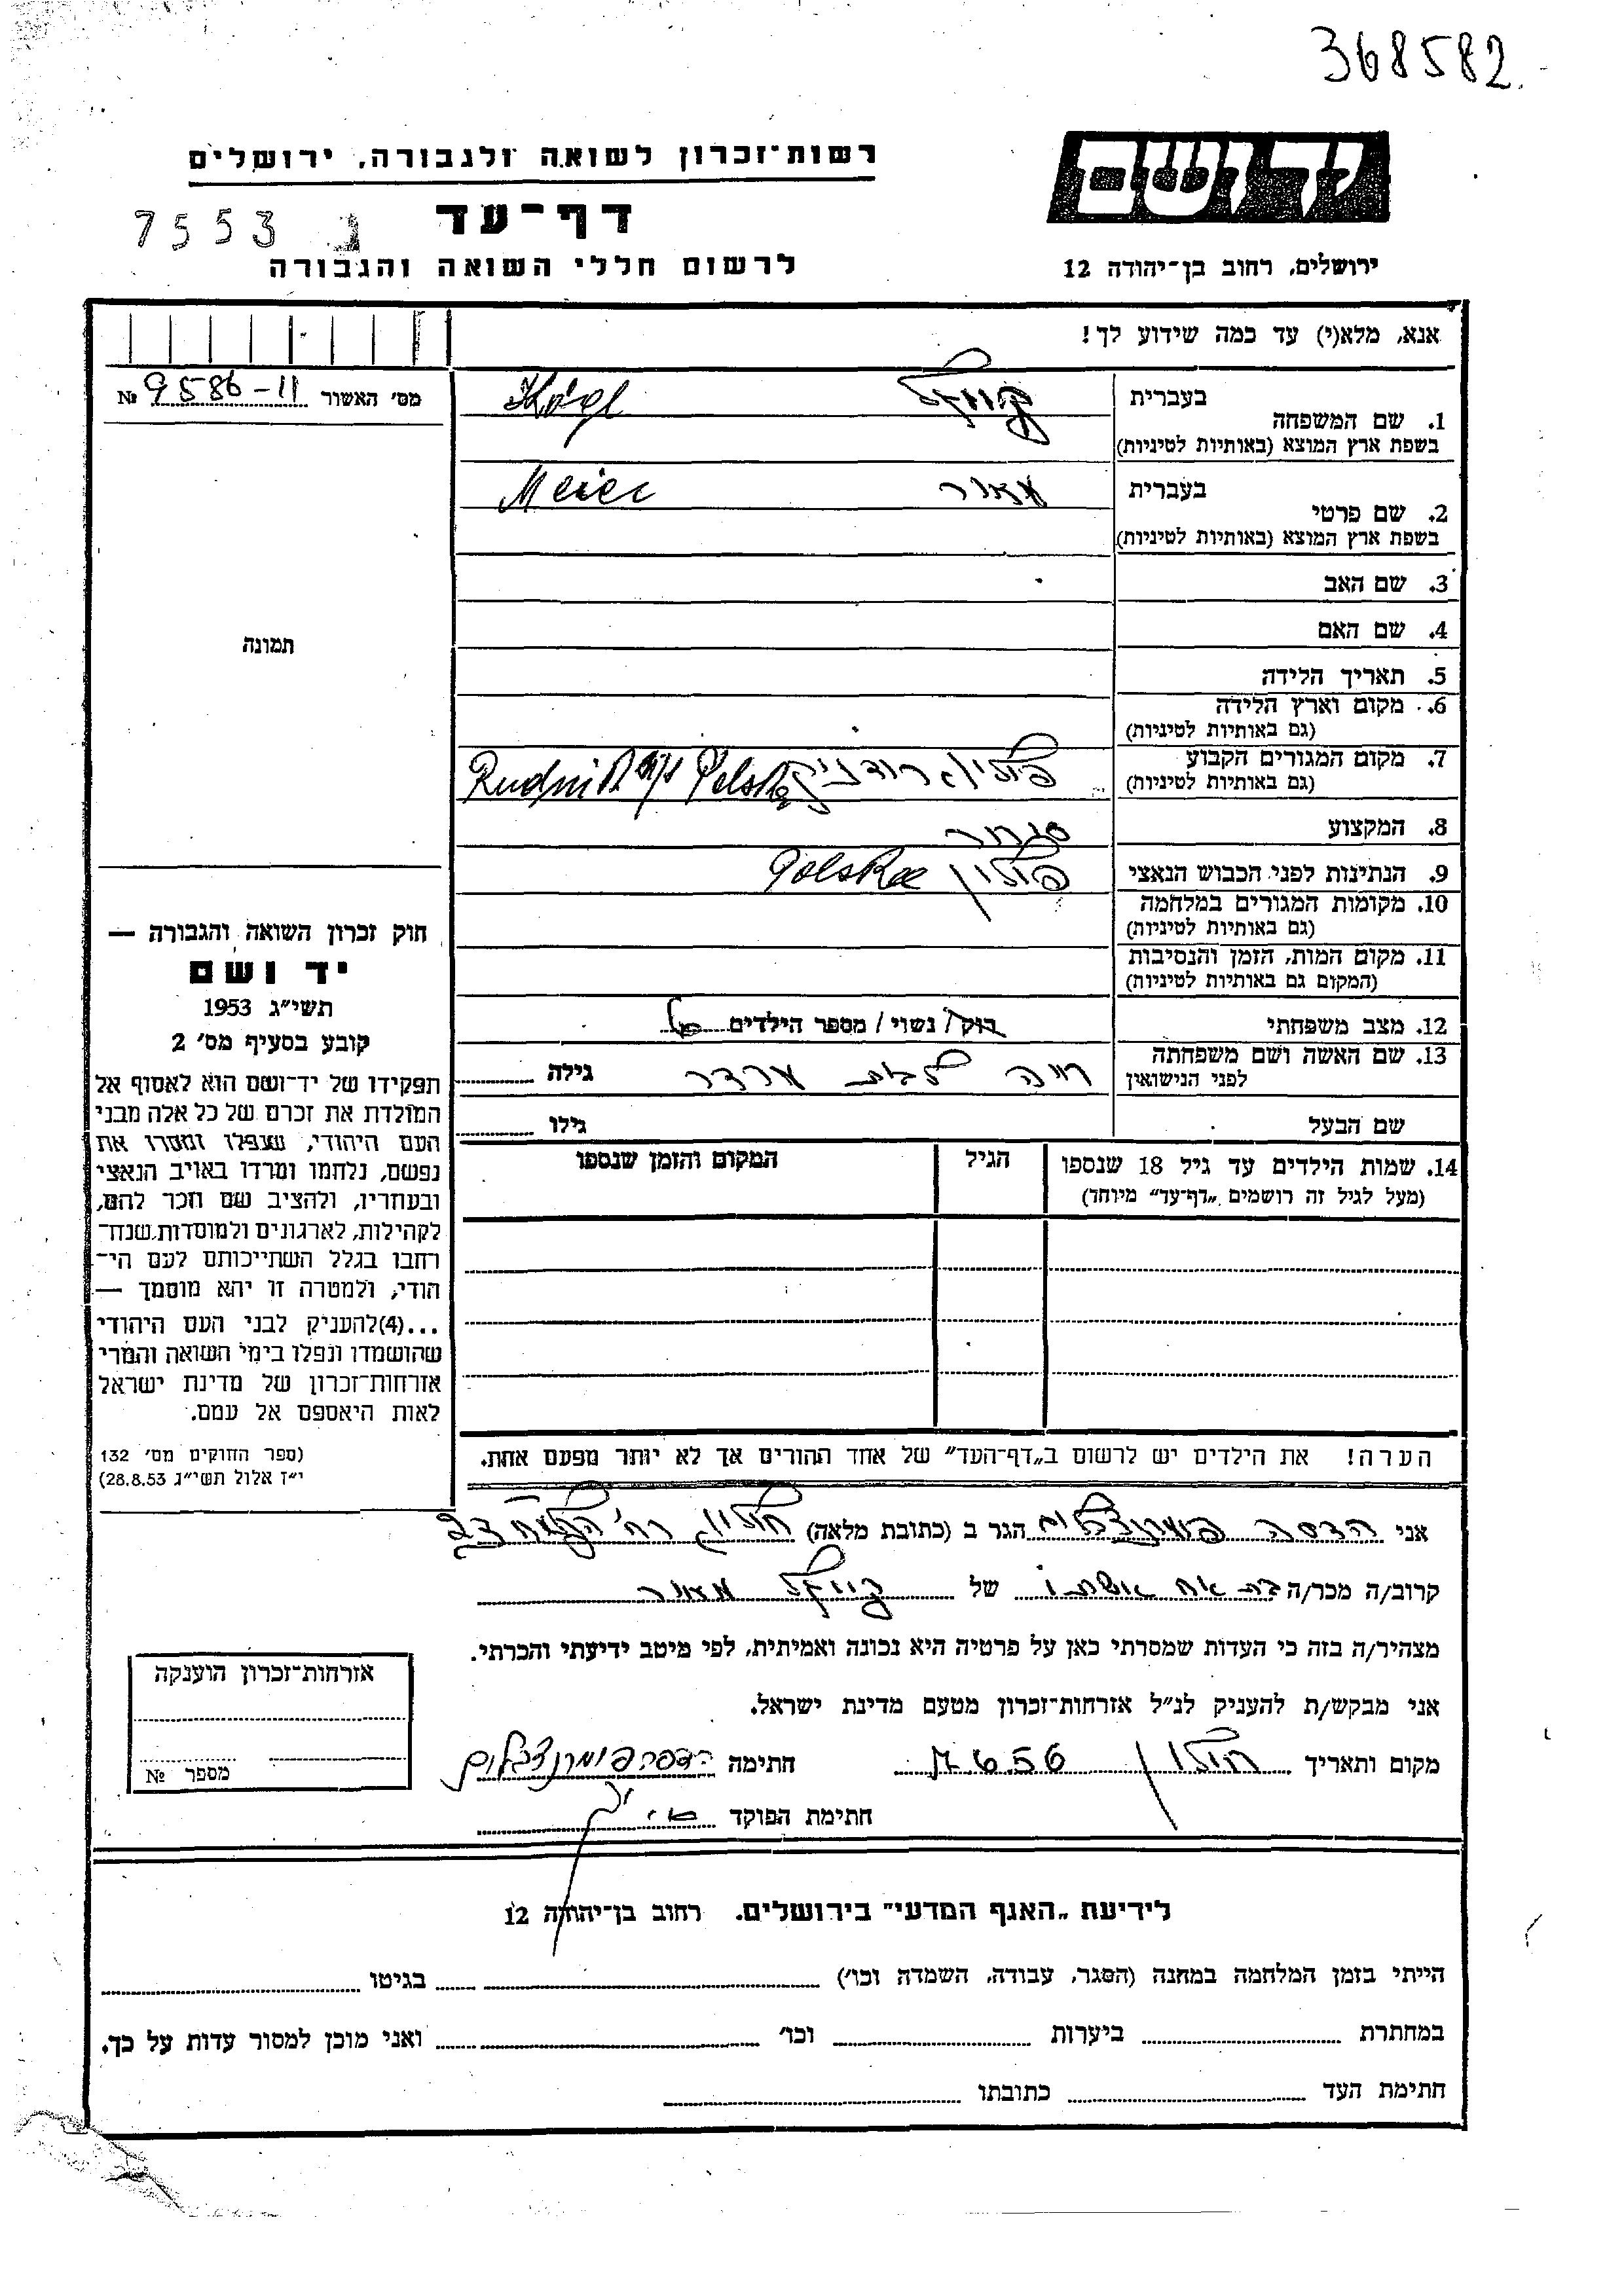 368582
רשות־זכרון לשואה ולגבורה, ירושלים
יד ושם
דף־עד
7553 ג
לרשום חללי השואה והגבורה
ירושלים, רחוב בן־יהודה 12
אנא, מלא(י) עד כמה שידוע לך!
מס׳ האשור № 9586-11
בעברית
1. שם המשפחה
Kögl
בשפת ארץ המוצא (באותיות לטיניות)
בעברית מאיר
Meier
2. שם פרטי
בשפת ארץ המוצא (באותיות לטיניות)
3. שם האב
תמונה
4. שם האם
5. תאריך הלידה
6. מקום וארץ הלידה
(גם באותיות לטיניות)
7. מקום המגורים הקבוע פולין, רודניק Rudnik n/s Polska
(גם באותיות לטיניות)
8. המקצוע סוחר
9. הנתינות לפני הכבוש הנאצי פולין Polska
10. מקומות המגורים במלחמה
(גם באותיות לטיניות)
11. מקום המות, הזמן והנסיבות
(המקום גם באותיות לטיניות)
12. מצב משפחתי רוק/ נשוי/ מספר הילדים
13. שם האשה ושם משפחתה חיה לבית גילה
לפני הנישואין
שם הבעל גילו
14. שמות הילדים עד גיל 18 שנספו הגיל המקום והזמן שנספו
(מעל לגיל זה רושמים „דף־עד״ מיוחד)
חוק זכרון השואה והגבורה —
יד ושם
תשי״ג 1953
קובע בסעיף מס׳ 2
תפקידו של יד־ושם הוא לאסוף אל
המולדת את זכרם של כל אלה מבני
העם היהודי, שנפלו ומסרו את
נפשם, נלחמו ומרדו באויב הנאצי
ובעוזריו, ולהציב שם וזכר להם,
לקהילות, לארגונים ולמוסדות, שנח־
רבו בגלל השתייכותם לעם הי־
הודי, ולמטרה זו יהא מוסמך —
...(4)להעניק לבני העם היהודי
שהושמדו ונפלו בימי השואה והמרי
אזרחות־זכרון של מדינת ישראל
לאות היאספם אל עמם.
(ספר החוקים מס׳ 132
י״ז אלול תשי״ג 28.8.53)
הערה! את הילדים יש לרשום ב„דף־העד״ של אחד ההורים אך לא יותר מפעם אחת.
אני הדסה פומרנצבלום הגר ב (כתובת מלאה) חולון, רח׳
קרוב/ה מכר/ה בת אח אשתו של מאיר
מצהיר/ה בזה כי העדות שמסרתי כאן על פרטיה היא נכונה ואמיתית, לפי מיטב ידיעתי והכרתי.
אני מבקש/ת להעניק לנ״ל אזרחות־זכרון מטעם מדינת ישראל.
מקום ותאריך חולון חתימה הדסה פומרנצבלום
חתימת הפוקד
אזרחות־זכרון הוענקה
מספר №
לידיעת „האגף המדעי״ בירושלים. רחוב בן־יהודה 12
הייתי בזמן המלחמה במחנה (הסגר, עבודה, השמדה וכו׳) בגיטו
במחתרת ביערות וכו׳ ואני מוכן למסור עדות על כך.
חתימת העד כתובתו